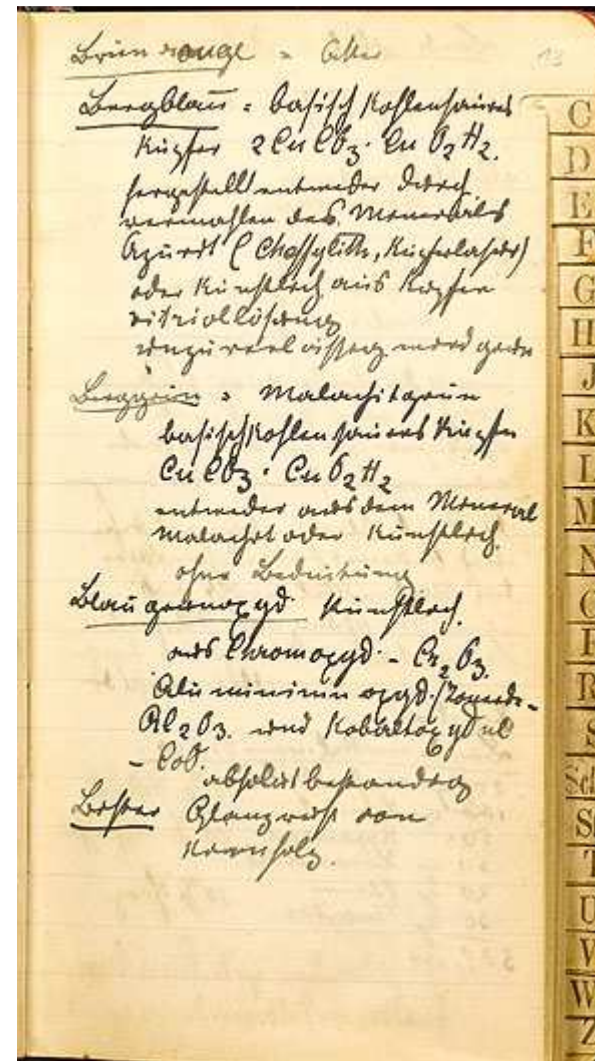 Brun rouge =
13
Bergblau = basisch kohlensaures
Kupfer 2CuCO3 · CuO2H2.
hergestellt entweder durch
vermahlen des Minerals
Azurit (Chessylith, Kupferlasur)
oder künstlich aus Kupfer
vitriollösung
unzuverlässig
Berggrün = Malachitgrün
basisch kohlensaures Kupfer
CuCO3 · CuO2H2
entweder aus dem Mineral
Malachit oder künstlich.
ohne Bedeutung
Blaugrünoxyd künstlich.
aus Chromoxyd - Cr2O3.
Aluminiumoxyd /Tonerde-
Al2O3. und Kobaltoxydul
- CoO.
absolut beständig
Bister Glanzruß von
C
D
E
F
G
H
J
K
L
M
N
O
P
R
S
Sch
St
T
U
V
W
Z